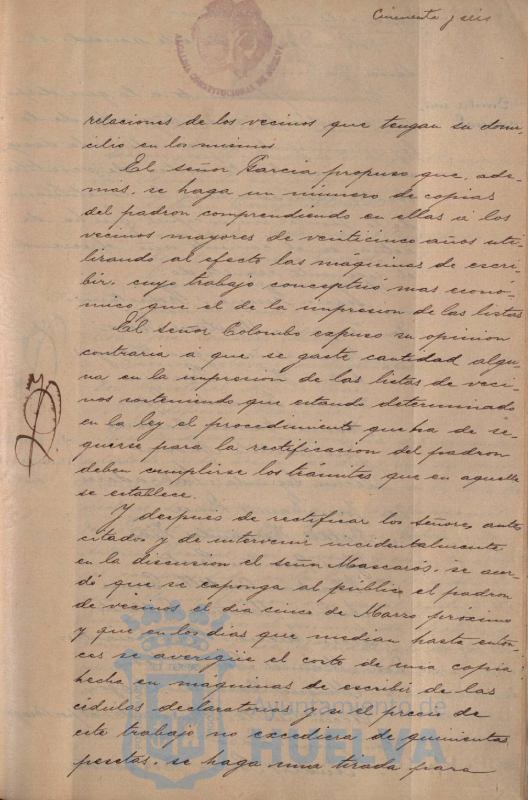 Cincuenta y seis
ALCALDIA CONSTITUCIONAL DE HUELVA
relaciones de los vecinos que tengan su domi-
cilio en los mismos
El señor Garcia propuso que, ade-
mas, se haga un número de copias
del padron comprendiendo en ellas á los
vecinos mayores de veinticinco años uti-
lizando al efecto las máquinas de escri-
bir, cuyo trabajo conceptuó mas econó-
mico que el de la impresion de las listas
El señor Colombo expuso su opinion
contraria á que se gaste cantidad algu-
na en la impresion de las listas de veci-
nos sosteniendo que estando determinado
en la ley el procedimiento que ha de se-
guirse para la rectificacion del padron
deben cumplirse los trámites que en aquella
se establece.
Y después de rectificar los señores ante
citados y de intervenir incidentalmente
en la discusion el señor Mascarós, se acor-
dó que se exponga al público el padron
de vecinos el dia cinco de Marzo próximo
y que en los dias que median hasta enton-
ces se averigüe el costo de una copia
hecha en máquinas de escribir de las
cédulas declaratorias y si el precio de
este trabajo no excediera de quinientas
pesetas, se haga una tirada para
Ayuntamiento de
HUELVA